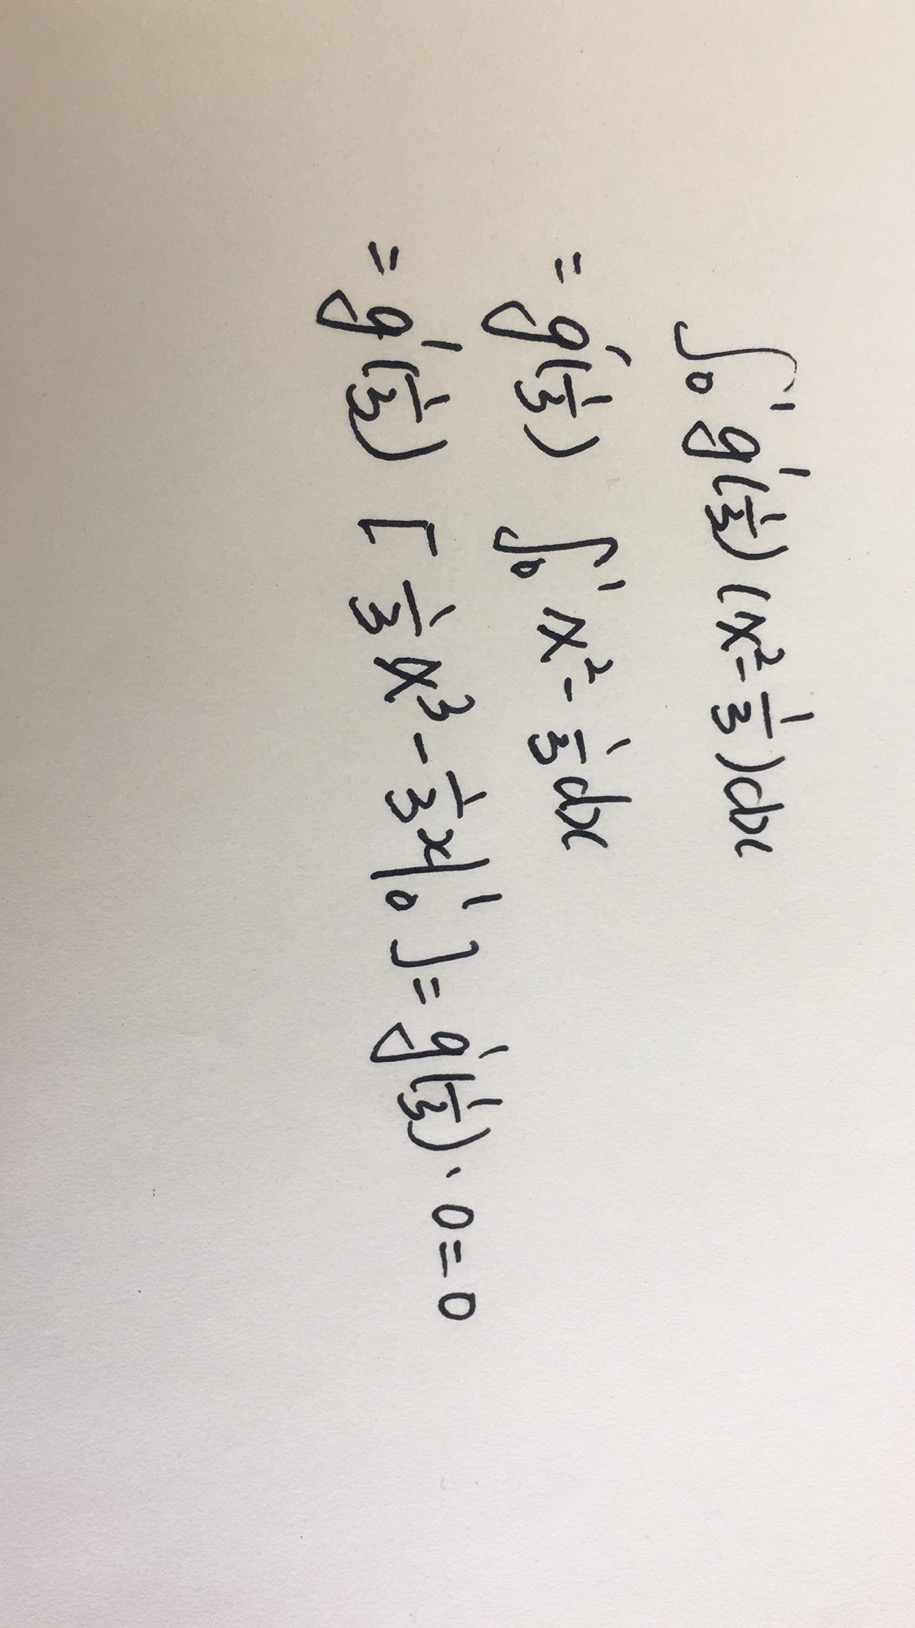 ∫₀¹ g'(1/3)(x²-1/3)dx
= g'(1/3) ∫₀¹ x²-1/3 dx
= g'(1/3) [1/3 x³ - 1/3 x|₀¹] = g'(1/3)·0=0